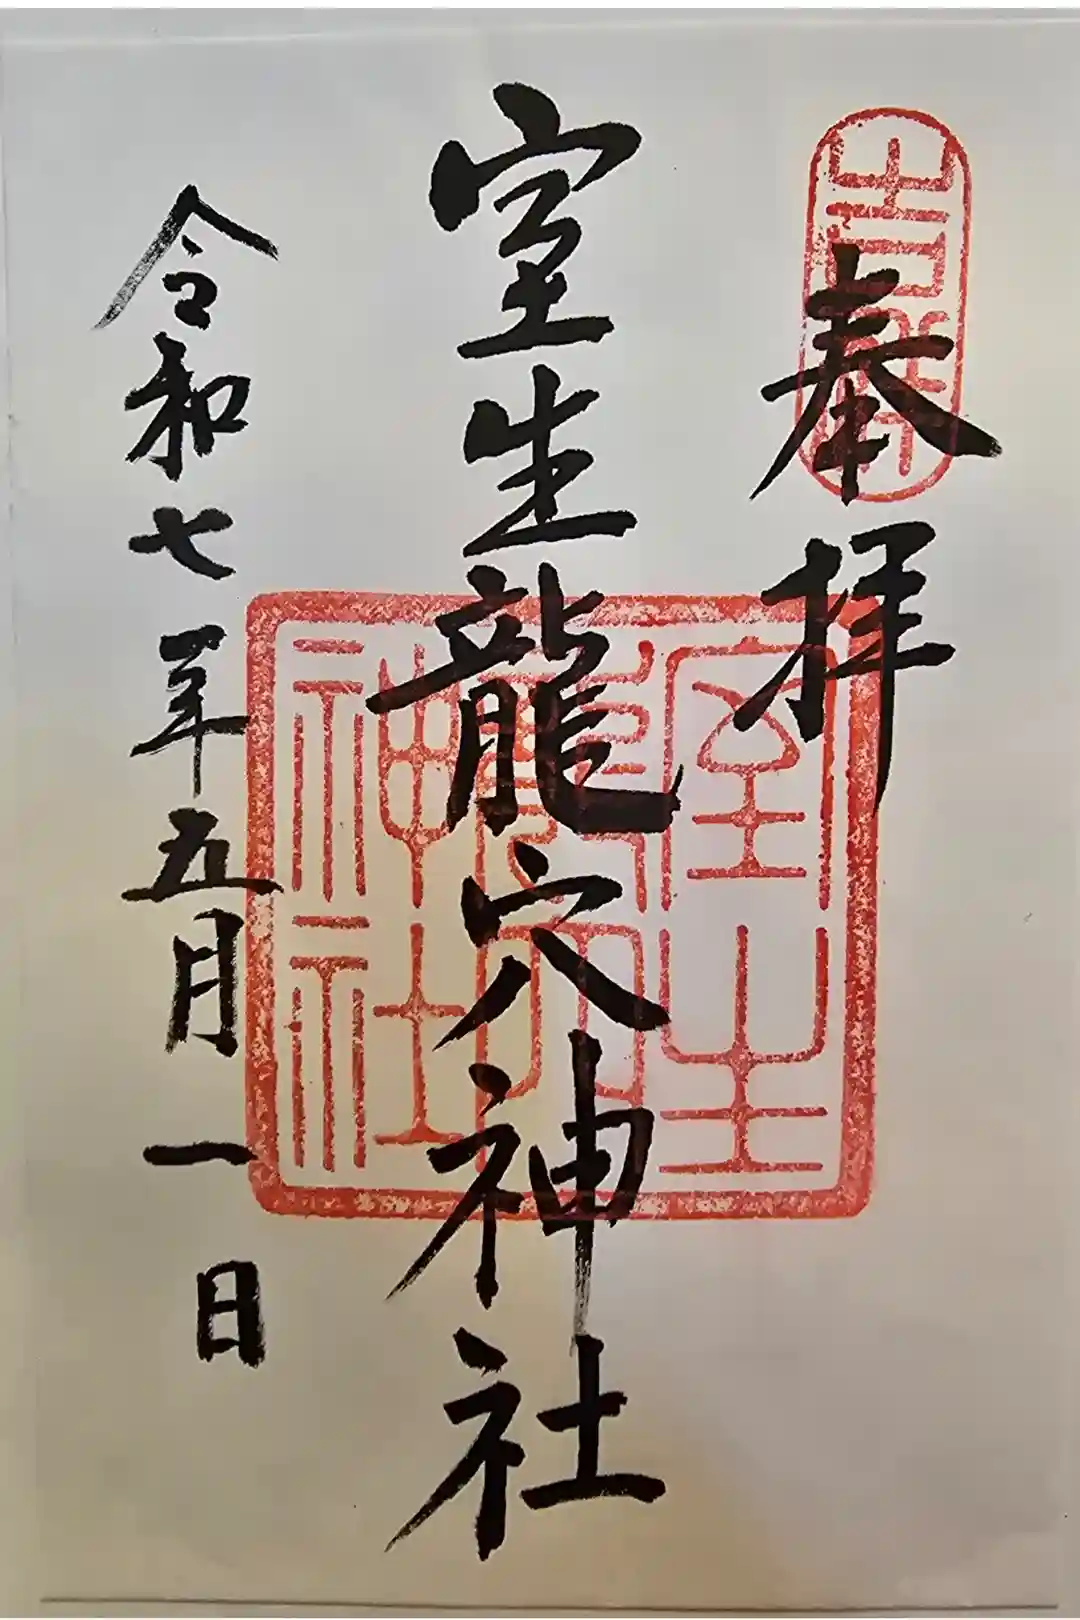 奉拝
室生龍穴神社
室生龍穴神社
令和七年五月一日